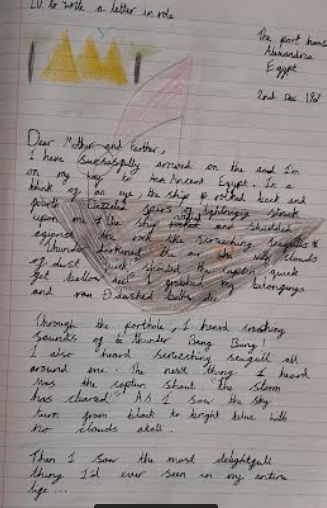 LO. to write a letter in role
The port house
Alexandria
Egypt
2nd Dec 192
Dear Mother and Farther,
I have sucessfully arrived on the and I'm
on my way to Ancient Egypt. In a
blink of an eye, the ship rocked back and
fourth. spers of lightnings struck
upon me & the ship and shudded
against the rock like screeching seagulls &
Thunder darkened the air with clouds
of dust. quick shouted the captin, quick
get bellow deck I grabbed my belongings
and ran & dashed
Through the porthole, I heard
sounds of thunder Bang Bang!
I also heard screeching seagull all
around me. The next thing I heard
was the captin shout "The storm
has cleared". As I saw the sky
turn from black to bright blue with
no clouds atall.
Then I saw the most delightfull
thing I'd ever seen in my entire
life....